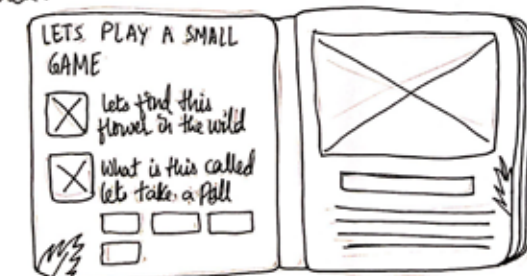 LETS PLAY A SMALL
GAME
lets find this
flower in the wild
What is this called
lets take a Poll